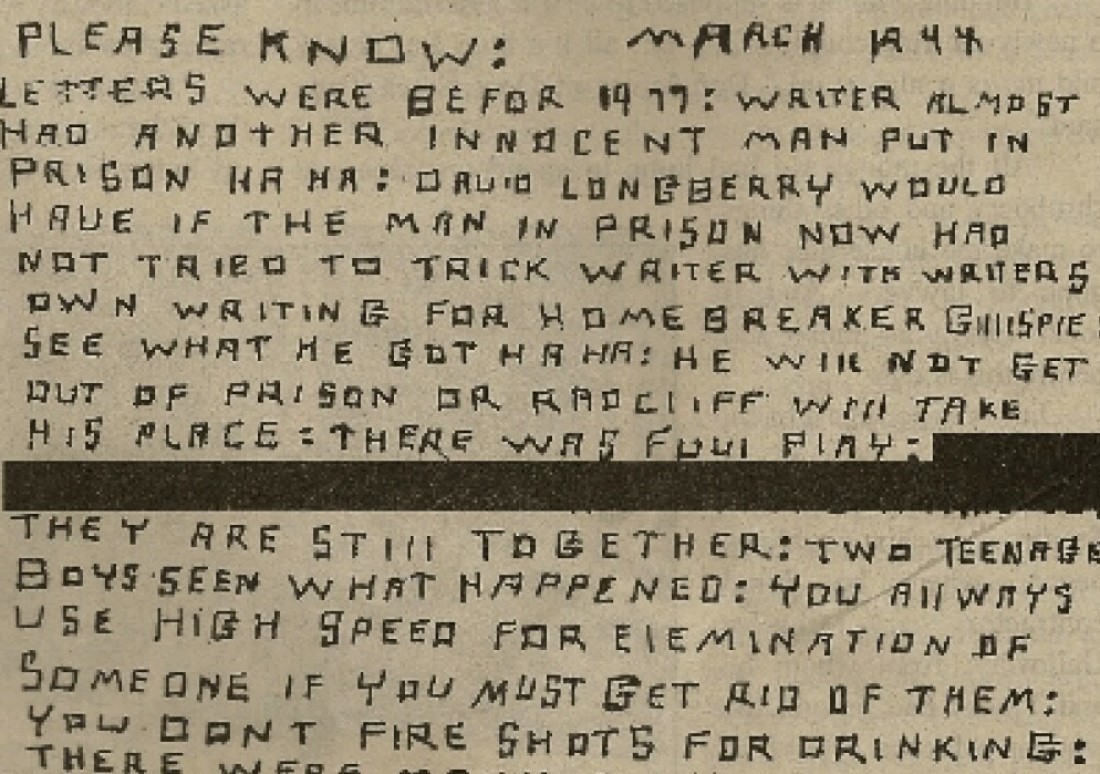 PLEASE KNOW: MARCH 1944
LETTERS WERE BEFOR 1977: WRITER ALMOST
HAD ANOTHER INNOCENT MAN PUT IN
PRISON HA HA: DAVID LONGBERRY WOULD
HAVE IF THE MAN IN PRISON NOW HAD
NOT TRIED TO TRICK WRITER WITH WRITERS
OWN WRITING FOR HOMEBREAKER GIllISPIE:
SEE WHAT HE GOT HA HA: HE WIll NOT GET
OUT OF PRISON OR RADCLIFF WIll TAKE
HIS PLACE: THERE WAS FOUl PlAY:
THEY ARE STIll TOGETHER: TWO TEENAGE
BOYS SEEN WHAT HAPPENED: YOU AllWAYS
USE HIGH SPEED FOR ElEMINATION OF
SOMEONE IF YOU MUST GET RID OF THEM:
YOU DONT FIRE SHOTS FOR DRINKING:
THERE WERE